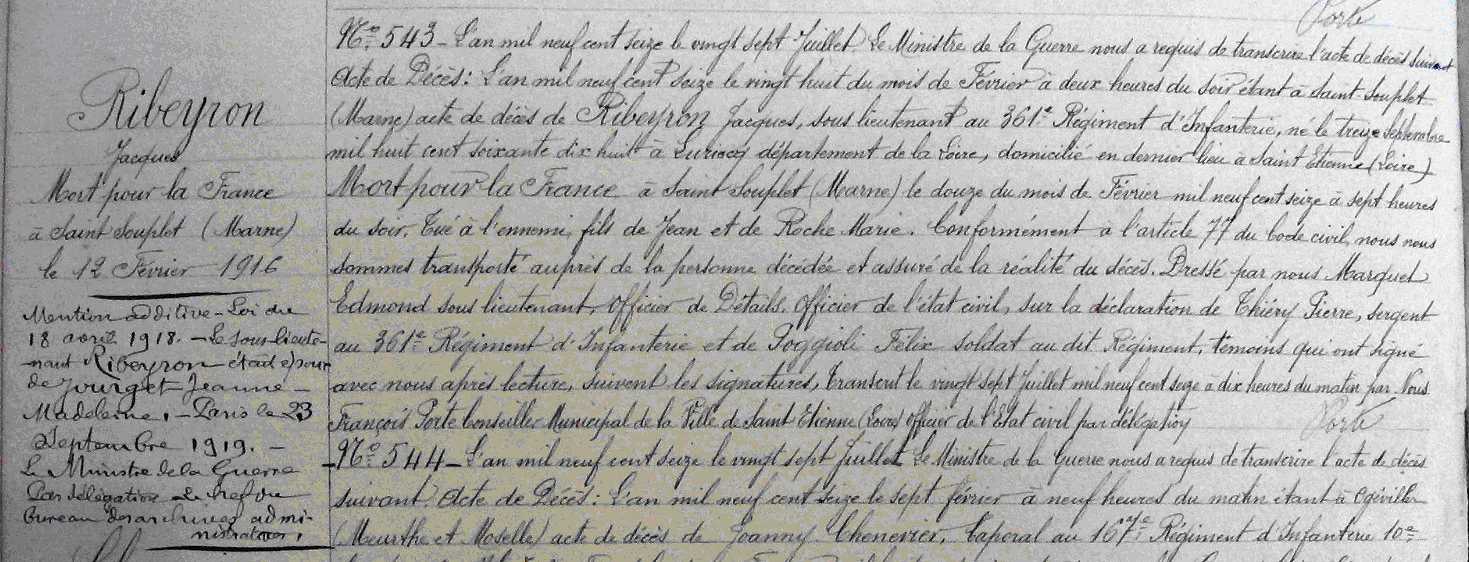 Porte
Ribeyron
Jacques
Mort pour la France
à Saint Souplet (Marne)
le 12 Février 1916
Mention additive - Loi du
18 avril 1918. - Le sous-lieute-
nant Ribeyron était époux
de Jourget Jeanne -
Madeleine. - Paris le 23
Septembre 1919. -
Le Ministre de la Guerre
Par délégation Le chef du
Bureau des archives admi-
nistratives.
N° 543 - L'an mil neuf cent seize le vingt sept Juillet Le Ministre de la Guerre nous a requis de transcrire l'acte de décès suivant
Acte de Décès: L'an mil neuf cent seize le vingt huit du mois de Février à deux heures du soir étant à Saint Souplet
(Marne) acte de décès de Ribeyron Jacques, sous lieutenant au 361e Régiment d'Infanterie, né le treize Septembre
mil huit cent soixante dix huit à Luriecq département de la Loire, domicilié en dernier lieu à Saint Etienne (Loire)
Mort pour la France à Saint Souplet (Marne) le douze du mois de Février mil neuf cent seize à sept heures
du soir. Tué à l'ennemi, fils de Jean et de Roche Marie. Conformément à l'article 77 du Code civil, nous nous
sommes transporté auprès de la personne décédée et assuré de la réalité du décès. Dressé par nous Marquet
Edmond sous lieutenant, Officier de Détails. Officier de l'état civil, sur la déclaration de Thiéry Pierre, sergent
au 361e Régiment d'Infanterie et de Poggioli Félix soldat au dit Régiment, témoins qui ont signé
avec nous après lecture, suivent les signatures, Transcrit le vingt sept Juillet mil neuf cent seize à dix heures du matin par Nous
François Porte Conseiller Municipal de la Ville de Saint-Etienne (Loire) Officier de l'Etat civil par délégation
Porte
- N° 544 - L'an mil neuf cent seize le vingt sept Juillet Le Ministre de la Guerre nous a requis de transcrire l'acte de décès
suivant. Acte de Décès: L'an mil neuf cent seize le sept février à neuf heures du matin étant à Ogéviller
(Meurthe et Moselle) acte de décès de Joanny Chenevier, Caporal au 167e Régiment d'Infanterie 10e